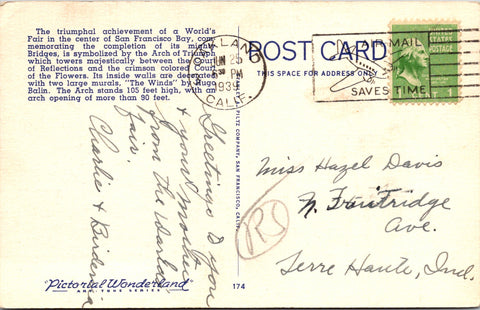 The triumphal achievement of a World's
Fair in the center of San Francisco Bay, com-
memorating the completion of its mighty
Bridges, is symbolized by the Arch of Triumph
which towers majestically between the Court
of Reflections and the crimson colored Court
of the Flowers. Its inside walls are decorated
with two large murals, "The Winds" by Hugo
Balin. The Arch stands 105 feet high, with an
arch opening of more than 90 feet.
Greetings to you
& your Mother
from the Worlds
fair.
Charlie &
"Pictorial Wonderland"
ART-TONE SERIES
174
POST CARD
THIS SPACE FOR ADDRESS ONLY
OAKLAND
JUN 25
PM
1939
CALIF.
AIR MAIL
SAVES TIME
POSTAGE
1
Miss Hazel Davis
N. Fruitridge
Ave.
Terre Haute, Ind.